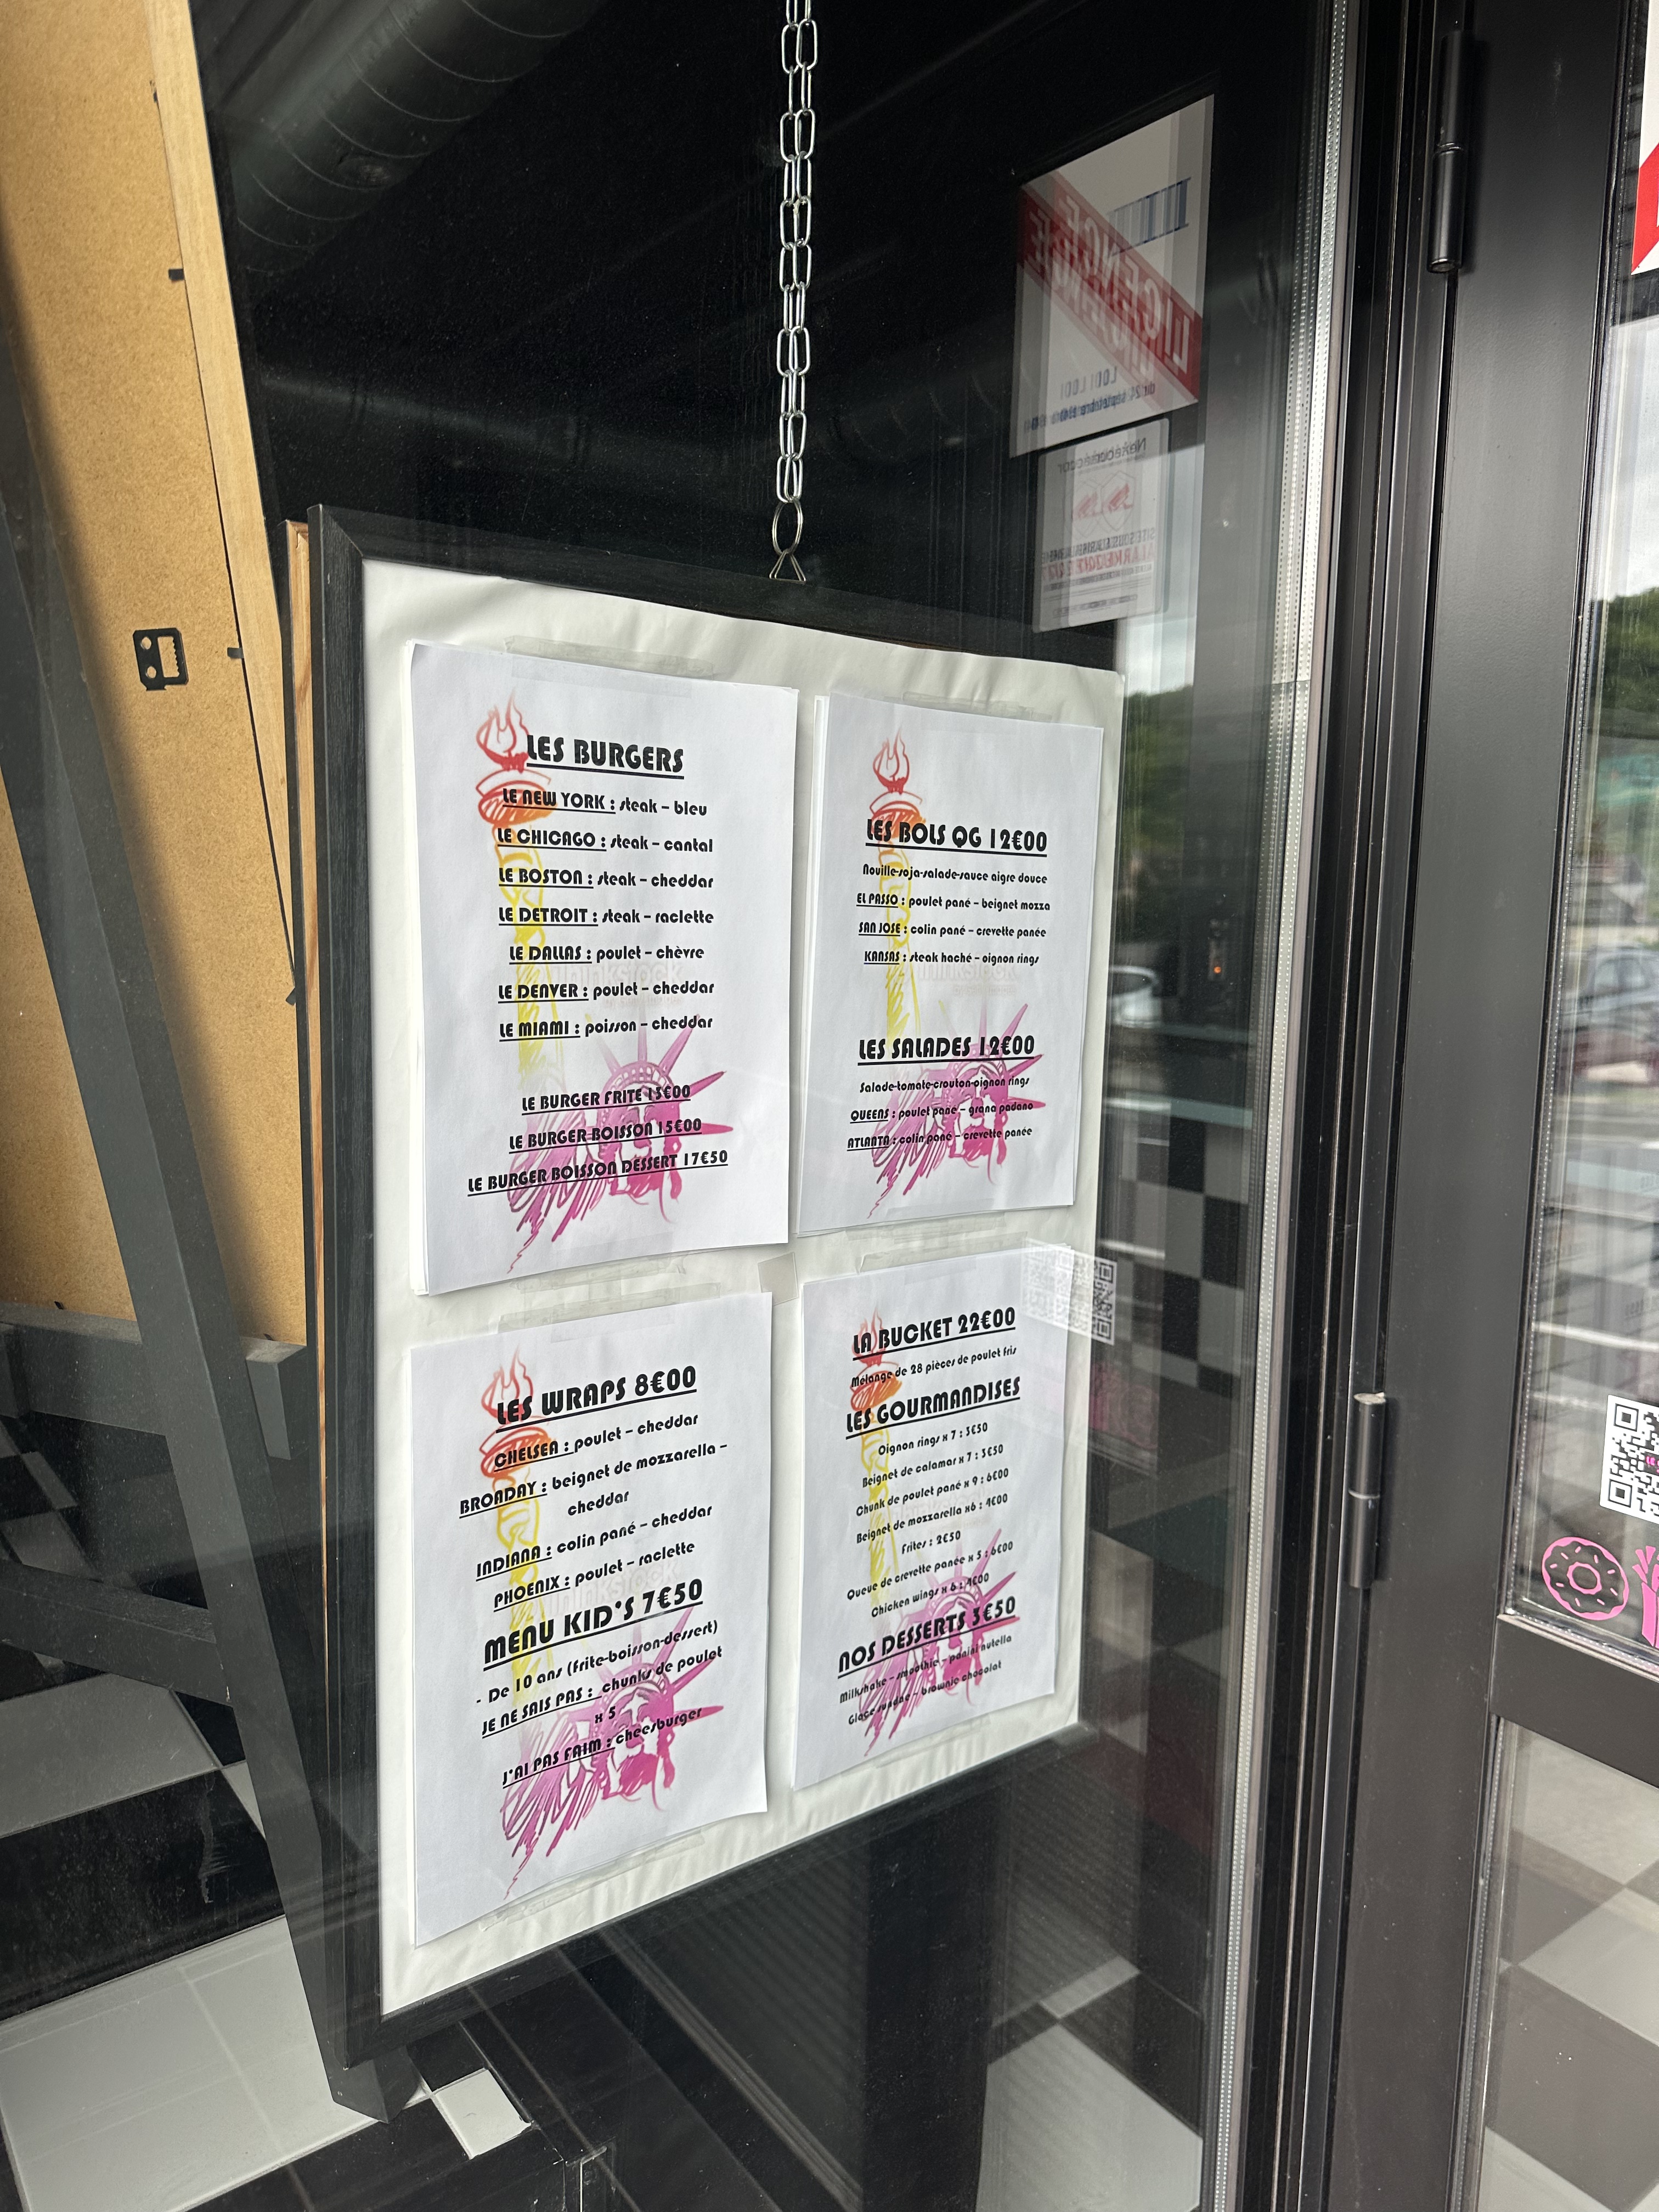 LES BURGERS
LE NEW YORK : steak – bleu
LE CHICAGO : steak – cantal
LE BOSTON : steak – cheddar
LE DETROIT : steak – raclette
LE DALLAS : poulet – chèvre
LE DENVER : poulet – cheddar
LE MIAMI : poisson – cheddar
LE BURGER FRITE 13€00
LE BURGER BOISSON 15€00
LE BURGER BOISSON DESSERT 17€50
LES BOLS QG 12€00
Nouille-soja-salade-sauce aigre douce
EL PASSO : poulet pané – beignet mozza
SAN JOSE : colin pané – crevette panée
KANSAS : steak haché – oignon rings
LES SALADES 12€00
Salade-tomate-crouton-oignon rings
QUEENS : poulet pané – grana padano
ATLANTA : colin pané – crevette panée
LES WRAPS 8€00
CHELSEA : poulet – cheddar
BROADAY : beignet de mozzarella –
cheddar
INDIANA : colin pané – cheddar
PHOENIX : poulet – raclette
MENU KID'S 7€50
- De 10 ans (frite-boisson-dessert)
JE NE SAIS PAS : chunks de poulet
x 5
J'AI PAS FAIM : cheesburger
LA BUCKET 22€00
Mélange de 28 pièces de poulet fris
LES GOURMANDISES
Oignon rings x 7 : 3€50
Beignet de calamar x 7 : 3€50
Chunk de poulet pané x 9 : 6€00
Beignet de mozzarella x6 : 4€00
Frites : 2€50
Queue de crevette panée x 5 : 6€00
Chicken wings x 6 : 4€00
NOS DESSERTS 3€50
Milkshake – smoothie – panini nutella
Glace sundae – brownie chocolat
LICENCE